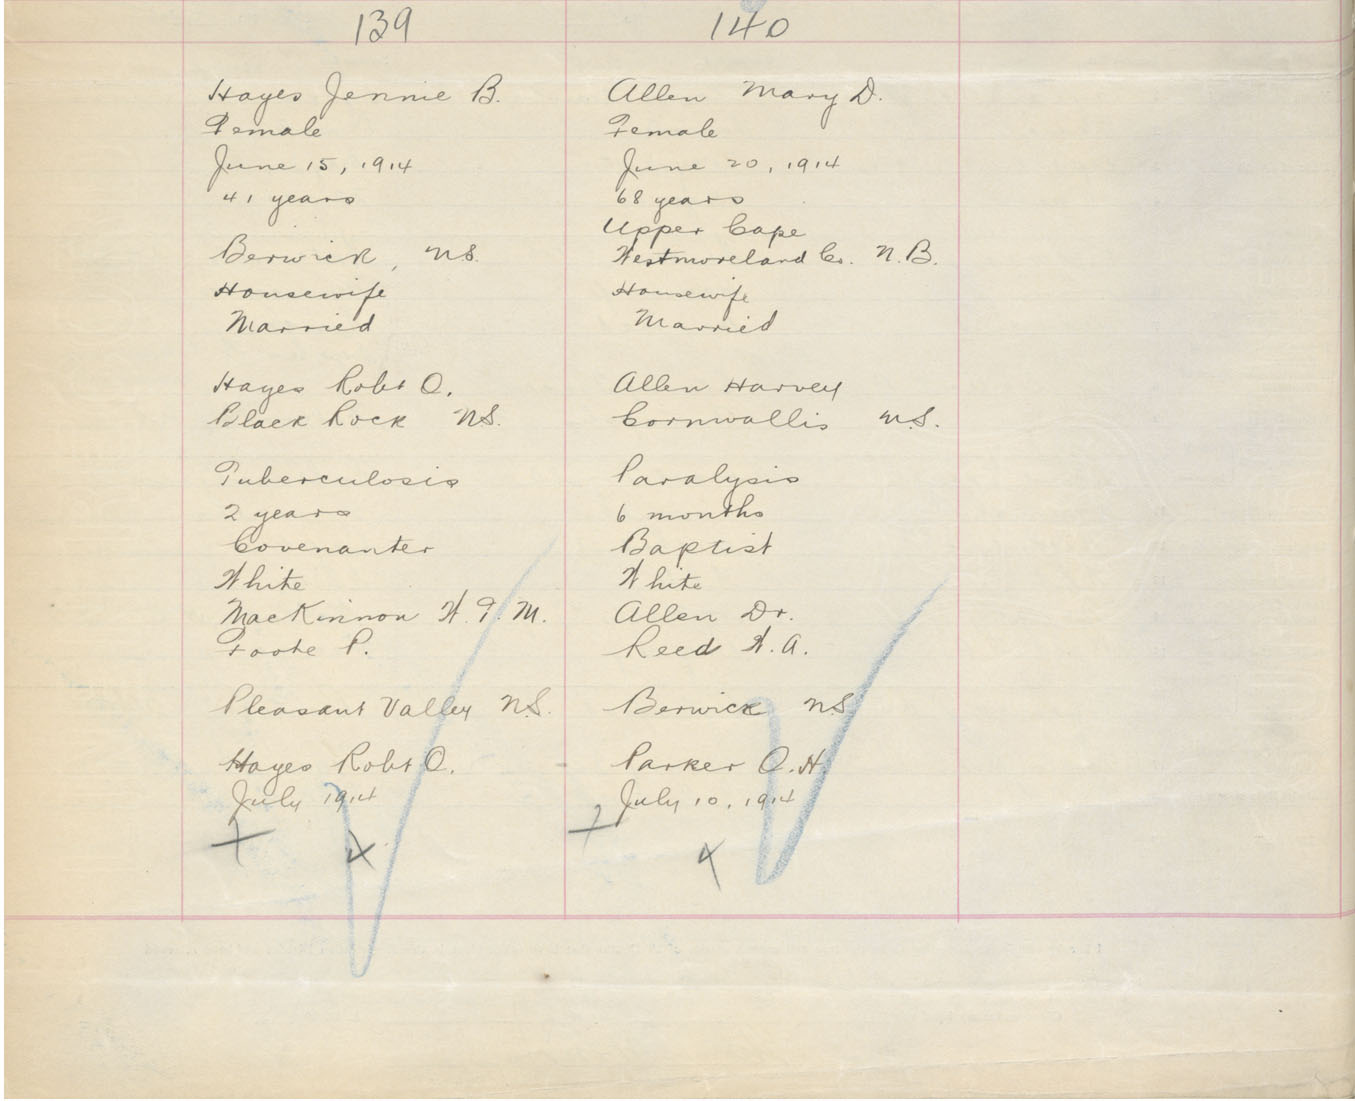 139
Hayes Jennie B.
Female
June 15, 1914
41 years
Berwick, N.S.
Housewife
Married
Hayes Robt O.
Black Rock N.S.
Tuberculosis
2 years
Covenanter
White
MacKinnon W. T. M.
Foote P.
Pleasant Valley N.S.
Hayes Robt O.
July 1914
140
Allen Mary D.
Female
June 20, 1914
68 years
Upper Cape
Westmoreland Co. N.B.
Housewife
Married
Allen Harvey
Cornwallis N.S.
Paralysis
6 months
Baptist
White
Allen Dr.
Reed W. A.
Berwick N.S.
Parker O. H.
July 10, 1914